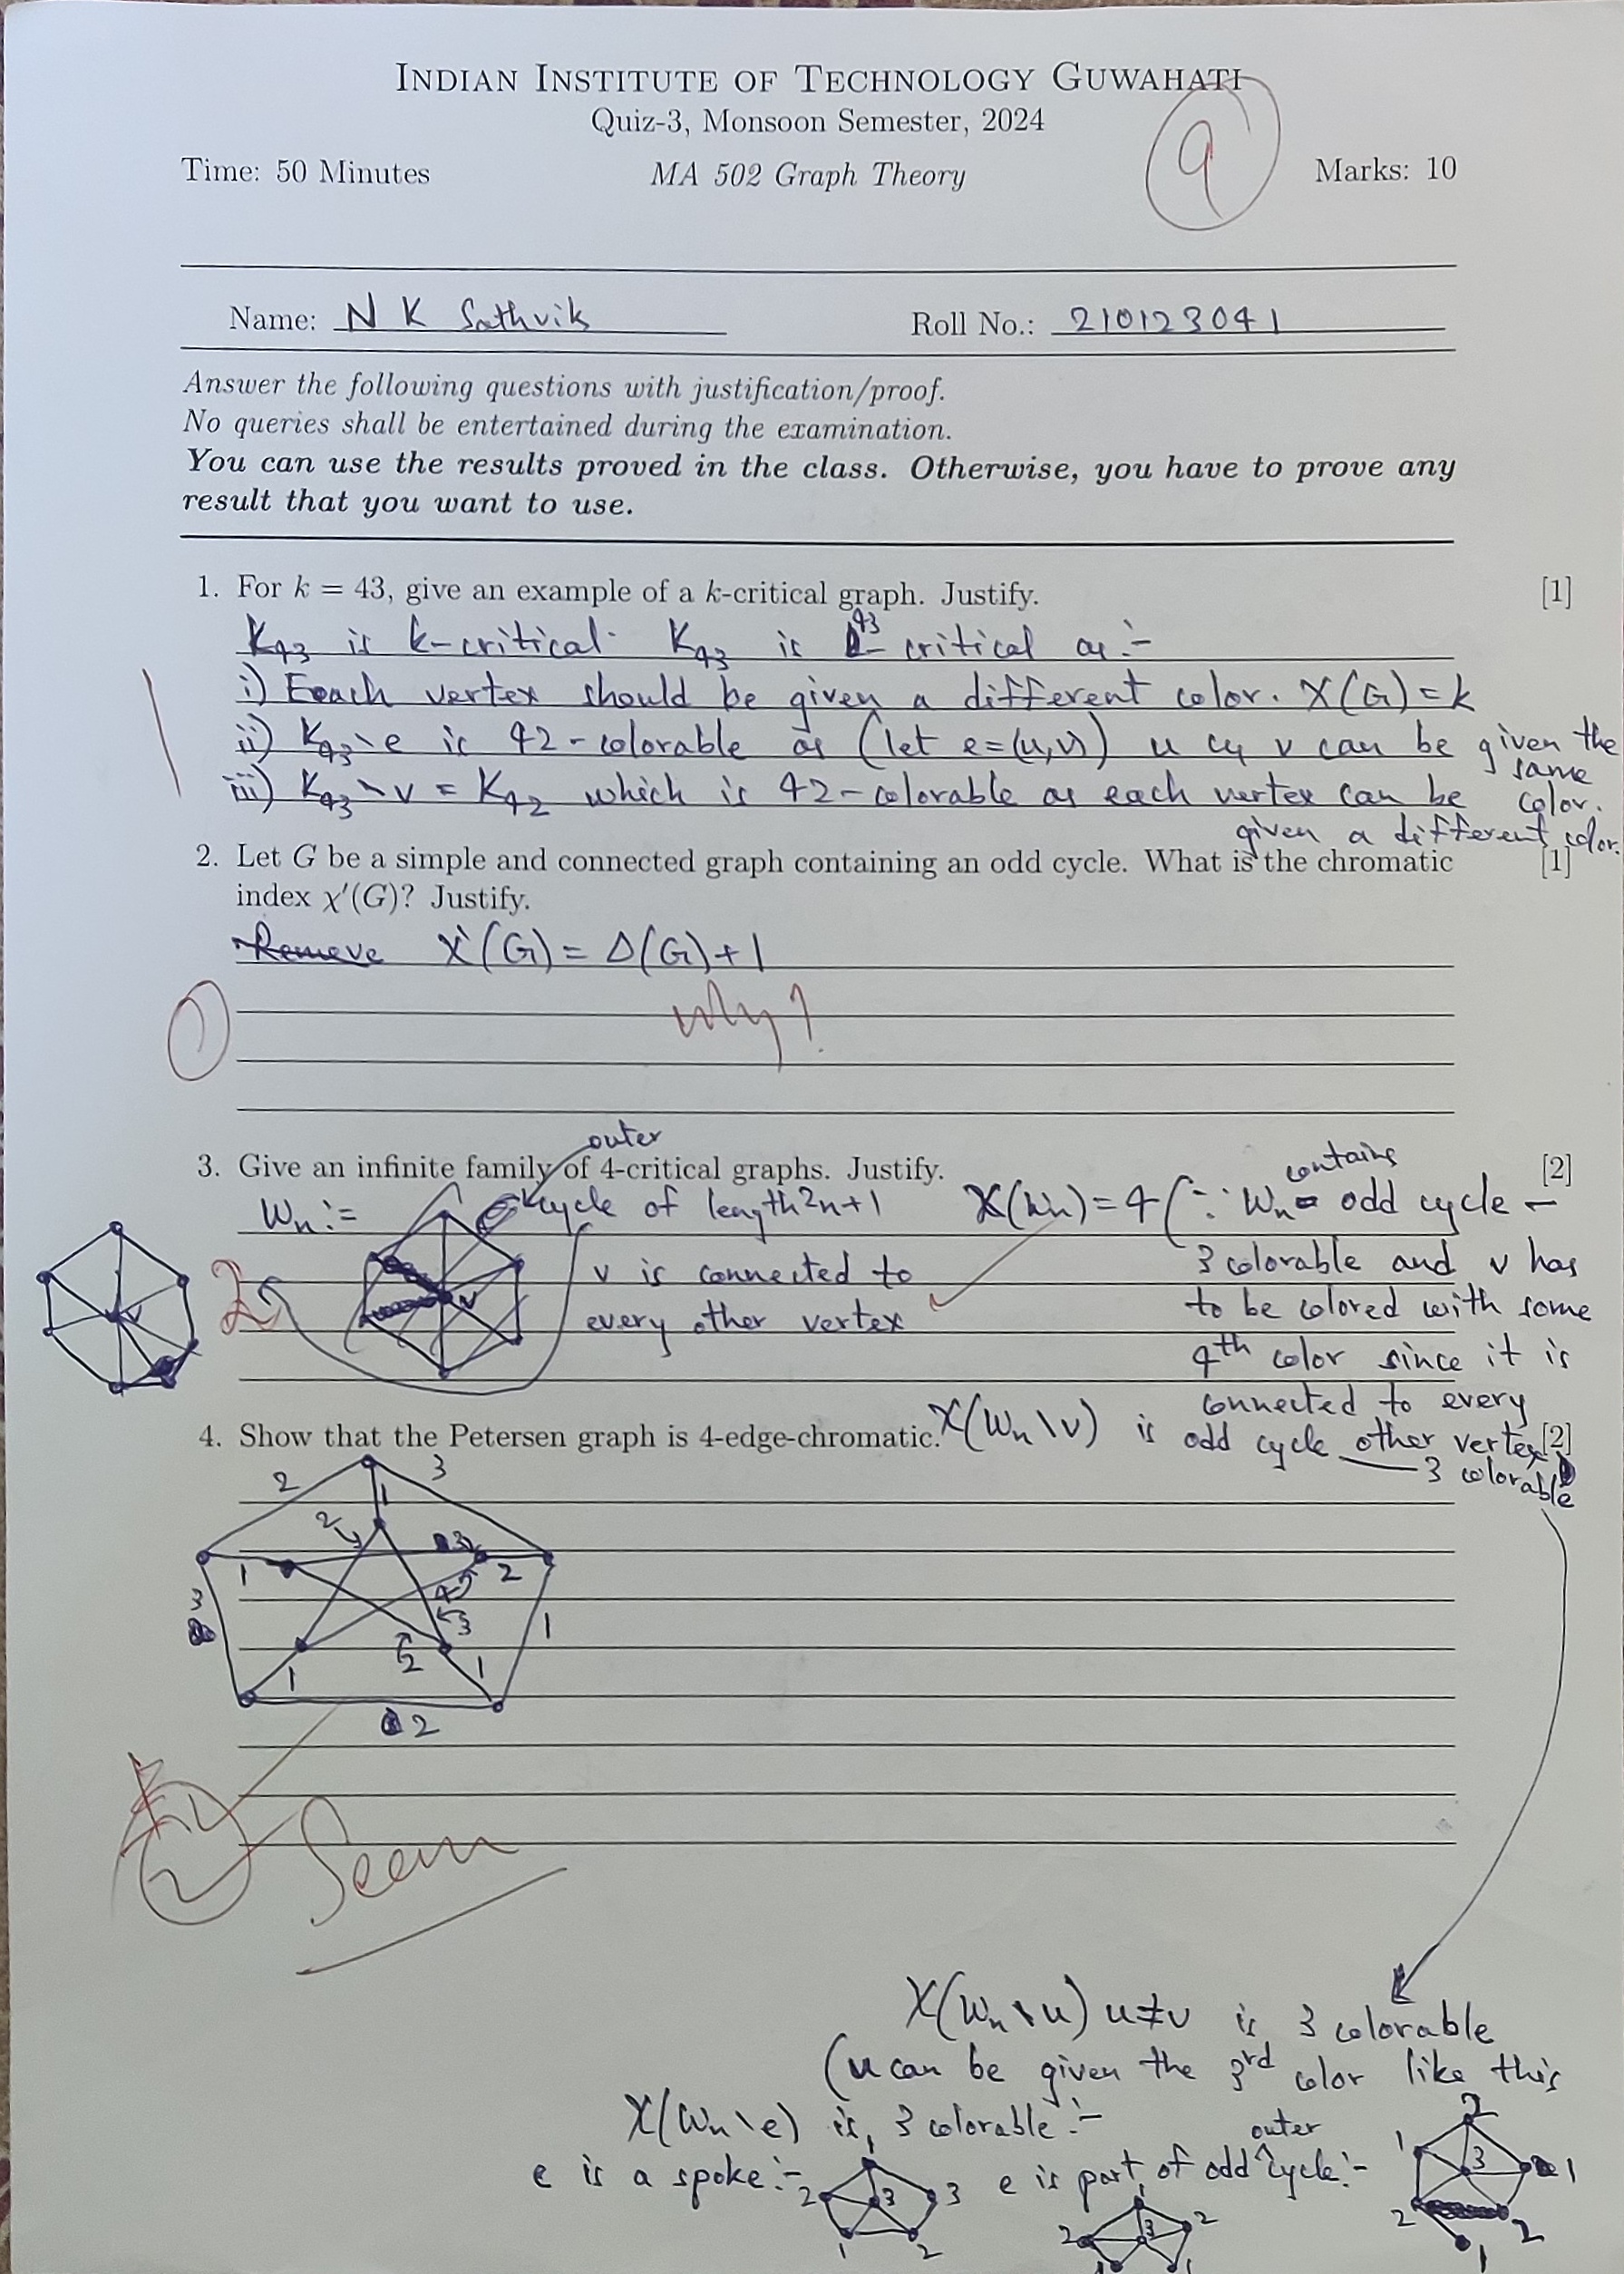 INDIAN INSTITUTE OF TECHNOLOGY GUWAHATI
Quiz-3, Monsoon Semester, 2024
9
Time: 50 Minutes MA 502 Graph Theory Marks: 10
Name: N K Sathvik Roll No.: 210123041
Answer the following questions with justification/proof.
No queries shall be entertained during the examination.
You can use the results proved in the class. Otherwise, you have to prove any
result that you want to use.
1. For k = 43, give an example of a k-critical graph. Justify. [1]
K43 is k-critical. K43 is 43 critical as :-
i) Each vertex should be given a different color. X(G) = k
ii) K43\e is 42-colorable as (let e=(u,v)) u & v can be given the same color.
iii) K43\v = K42 which is 42-colorable as each vertex can be given a different color.
1
2. Let G be a simple and connected graph containing an odd cycle. What is the chromatic [1]
index χ′(G)? Justify.
Remove X'(G) = Δ(G)+1
why?
3. Give an infinite family of 4-critical graphs. Justify. [2]
Wn := outer cycle of length 2n+1
v is connected to
every other vertex
v
v
2
X(Wn) = 4 (∵ Wn contains odd cycle –
3 colorable and v has
to be colored with some
4th color since it is
connected to every
other vertex)
X(Wn\v) is odd cycle — 3 colorable
4. Show that the Petersen graph is 4-edge-chromatic. [2]
2 3
1
2 3
1 2
4
3 3 1
2
1 1
2
2
Seen
X(Wn\u) u≠v is 3 colorable
(u can be given the 3rd color like this
X(Wn\e) is 3 colorable :-
e is a spoke :- e is part of odd outer cycle :-
1
2 3 3
1 2
1
2 3 2
1 1
2
1 3 1
2 2
1